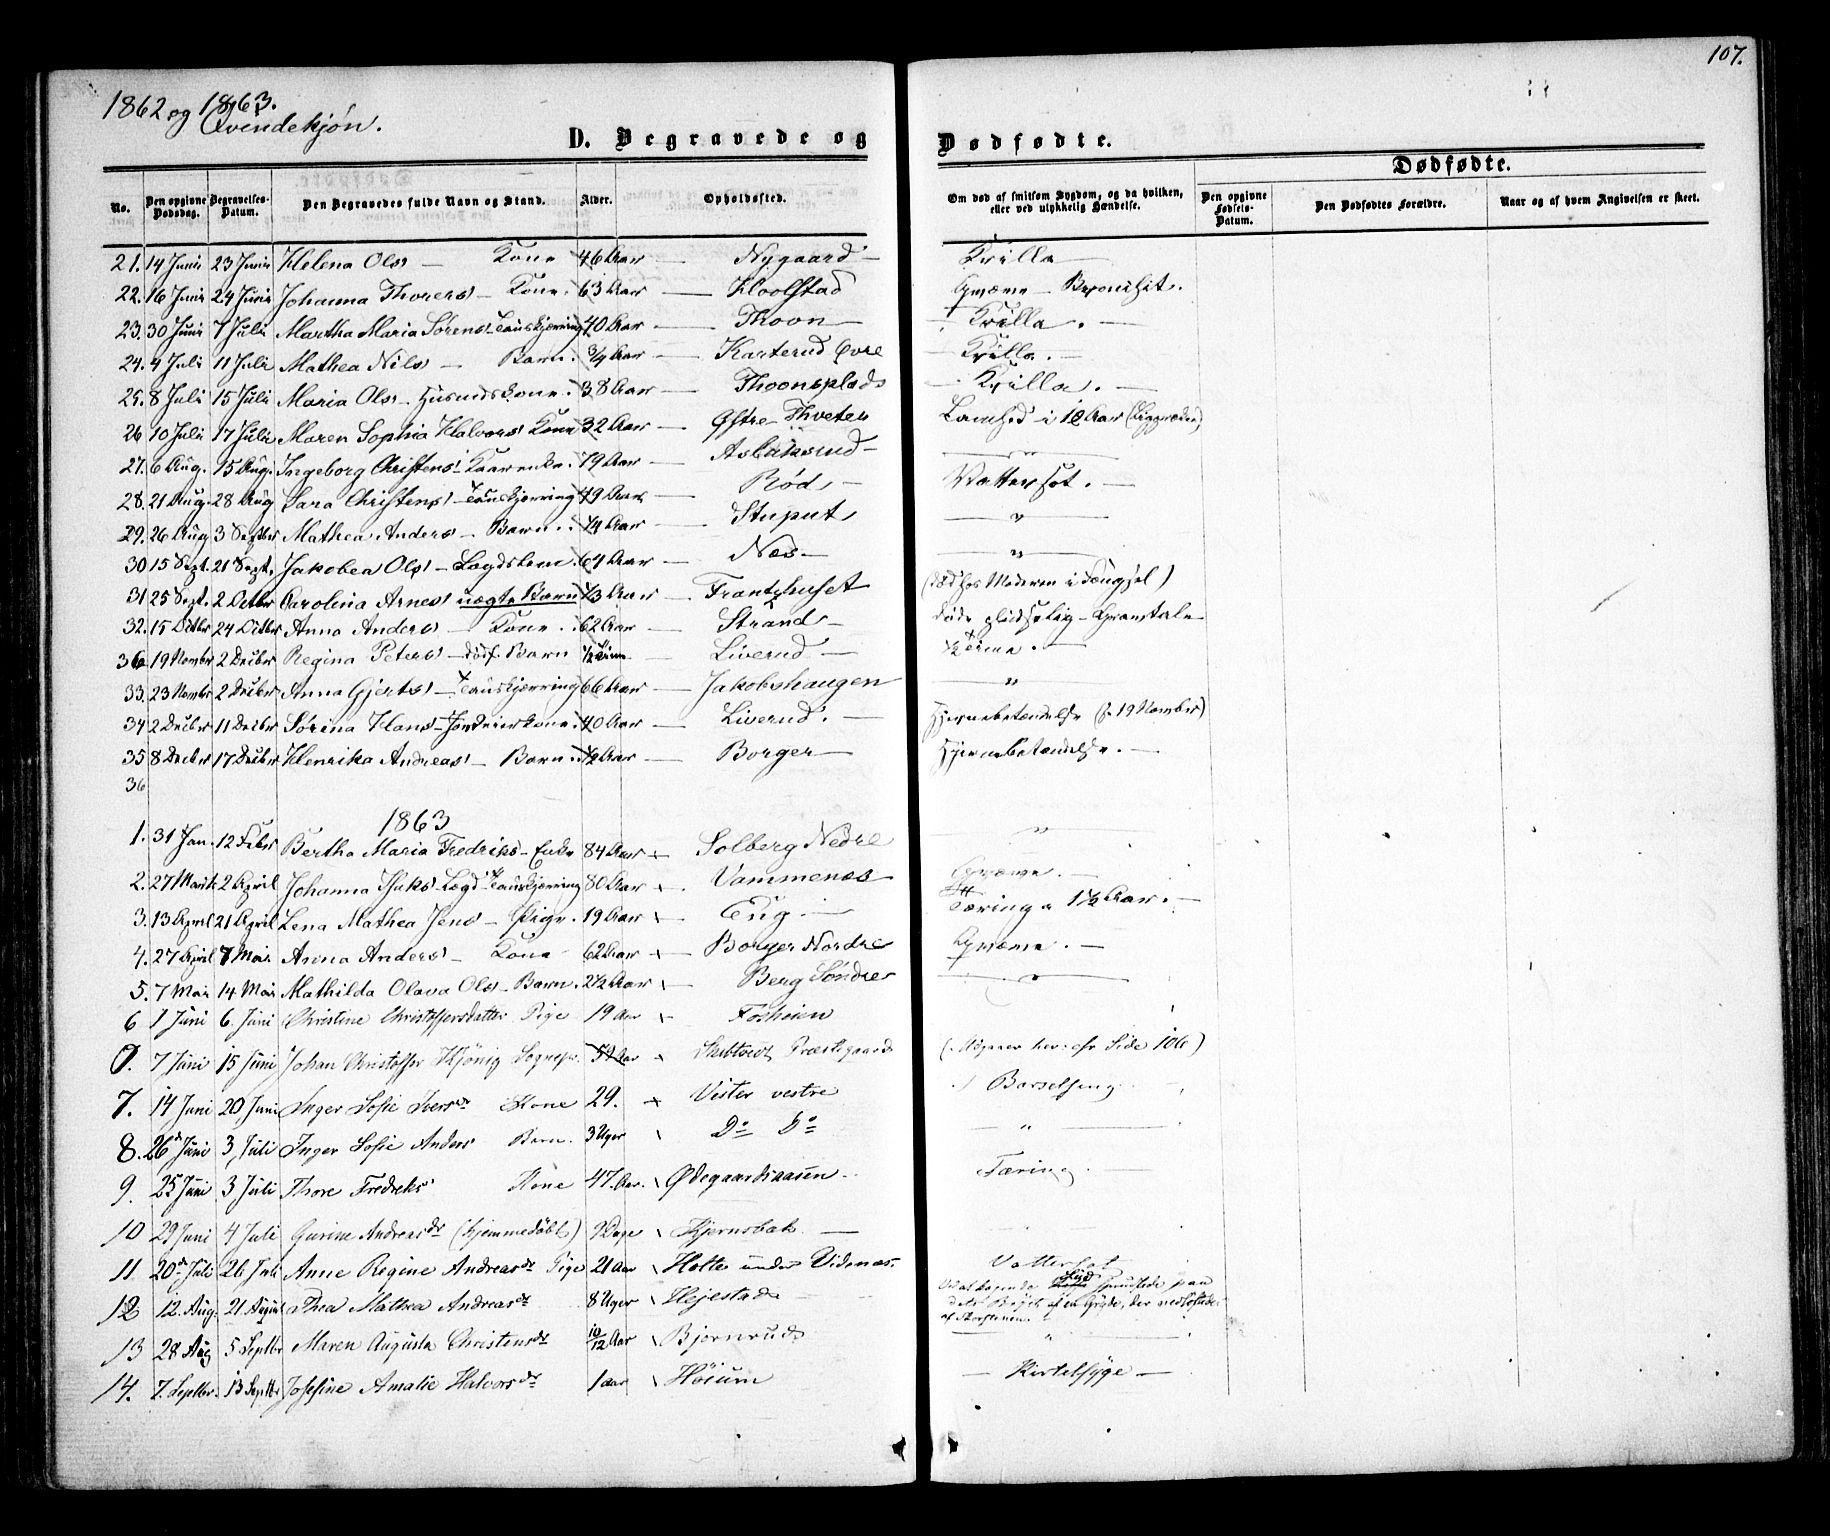 107.
1862 og 1863.
Qvindekjøn.
D. Begravede og Dødfødte.
Dødfødte.
No. Den opgivne Dødsdag. Begravelses-Datum. Den Begravedes fulde Navn og Stand. Alder. Opholdssted. Om død af smitsom Sygdom, og da hvilken, eller ved ulykkelig Hændelse. Den opgivne Fødsels-Datum. Den Dødfødtes Forældre. Naar og af hvem Angivelsen er skeet.
21. 14 Juni 23 Juni Helena Ols – Kone 46 Aar – Nygaard –
22. 16 Juni 24 Juni Johanna Thorers – Kone. 63 Aar –
23. 30 Juni 7 Juli Martha Maria Sørens 40 Aar – Thoon –
24. 4 Juli 11 Juli Mathea Nils – Barn. 3/4 Aar – Karterud Øvre
25. 8 Juli 15 Juli Maria Ols – Husmdskone. 38 Aar – Thoonsplads
26 10 Juli 17 Juli Maren Sophia Halvors Kone 32 Aar – Østre Thveter i 12 Aar
27. 6 Aug. 15 Aug. Ingeborg Christens Kaarenke. 79 Aar – Aslaksrud –
28. 21 Aug. 28 Aug Sara Christens 49 Aar – Rød – Vattersot. –
29. 26 Aug 3 Septbr Mathea Anders – Barn. 1/4 Aar – Stuput – "
30 15 Sept. 21 Sept. Jakobea Ols – Lægdslem 64 Aar – Næs – "
31 25 Sept. 2 Octbr Carolina Arnes uægte Barn 1/3 Aar – Frantzhuset (død hos Moderen i Fængsel)
32. 15 Octbr 24 Octbr Anna Anders – Kone. 62 Aar – Strand –
36 19 Novmbr 2 Decbr Regina Peters – Barn 1/2 Time – Liverud – 1/2 Time. –
33. 23 Novmbr 2 Decbr Anna Gjerts 66 Aar – Jakobshaugen "
34 2 Decbr 11 Decbr Sørina Hans – 40 Aar – Liverud. – Hjernebetændelse (Se 19 Novmber)
35 8 Decbr 17 Decbr Henrika Andreas – Barn. 1/2 Aar – Borger – Hjernebetændelse. –
36
1863
1. 31 Jan. 12 Febr Bertha Maria Fredriks – Enke 84 Aar – Solberg Nedre "
2. 27 Marts 2 April Johanna 80 Aar Vammenæs
3. 13 April 21 April Lena Mathea Jens – Pige. 19 Aar Eug – Tæring 1 1/2 Aar. –
4. 27 April 7 Mai Anna Anders – Kone 62 Aar Borger Nordre
5. 7 Mai 14 Mai Mathilda Olava Ols – Barn. 2 1/2 Aar Berg Søndre "
6 1 Juni 6. Juni Christine Christophersdatter Pige 19 Aar Foshøien
0. 7 Juni 15 Juni Johan Christoffer Sognepr. 59 Aar Skibtvedt Præstegaard (Udgaaer her. cfr Side 106)
7. 14 Juni 20 Juni Inger Sofie Iversdr Kone 29. Vister vestre Barselseng
8. 26de Juni 3, Juli Inger Sofie Anders Barn. 3 Uger Do Do "
9. 25 Juni 3 Juli Thore Fredriks Kone 47. Aar. Ødegaardsaasen Tæring –
10 29 Juni 4 Juli Gurine Andreasdr (hjemmedøbt) 9 Dage Kjernsbak –
11 20de Juli 26 Juli Anne Regine Andreasdr Pige 21 Aar Holte under Videnæs Vattersot
12 12. Aug. 21 August Thea Mathea Andreasdr 8 Uger Hejestad –
af Skorstenen.
13 28 Aug 5 Septbr Maren Augusta Christensdr 10/12 Aar Bjørnrud "
14. 7. Septbr. 13 Septbr Josefine Amalie Halvorsdr 1 aar Høium – Kirtelsyge –